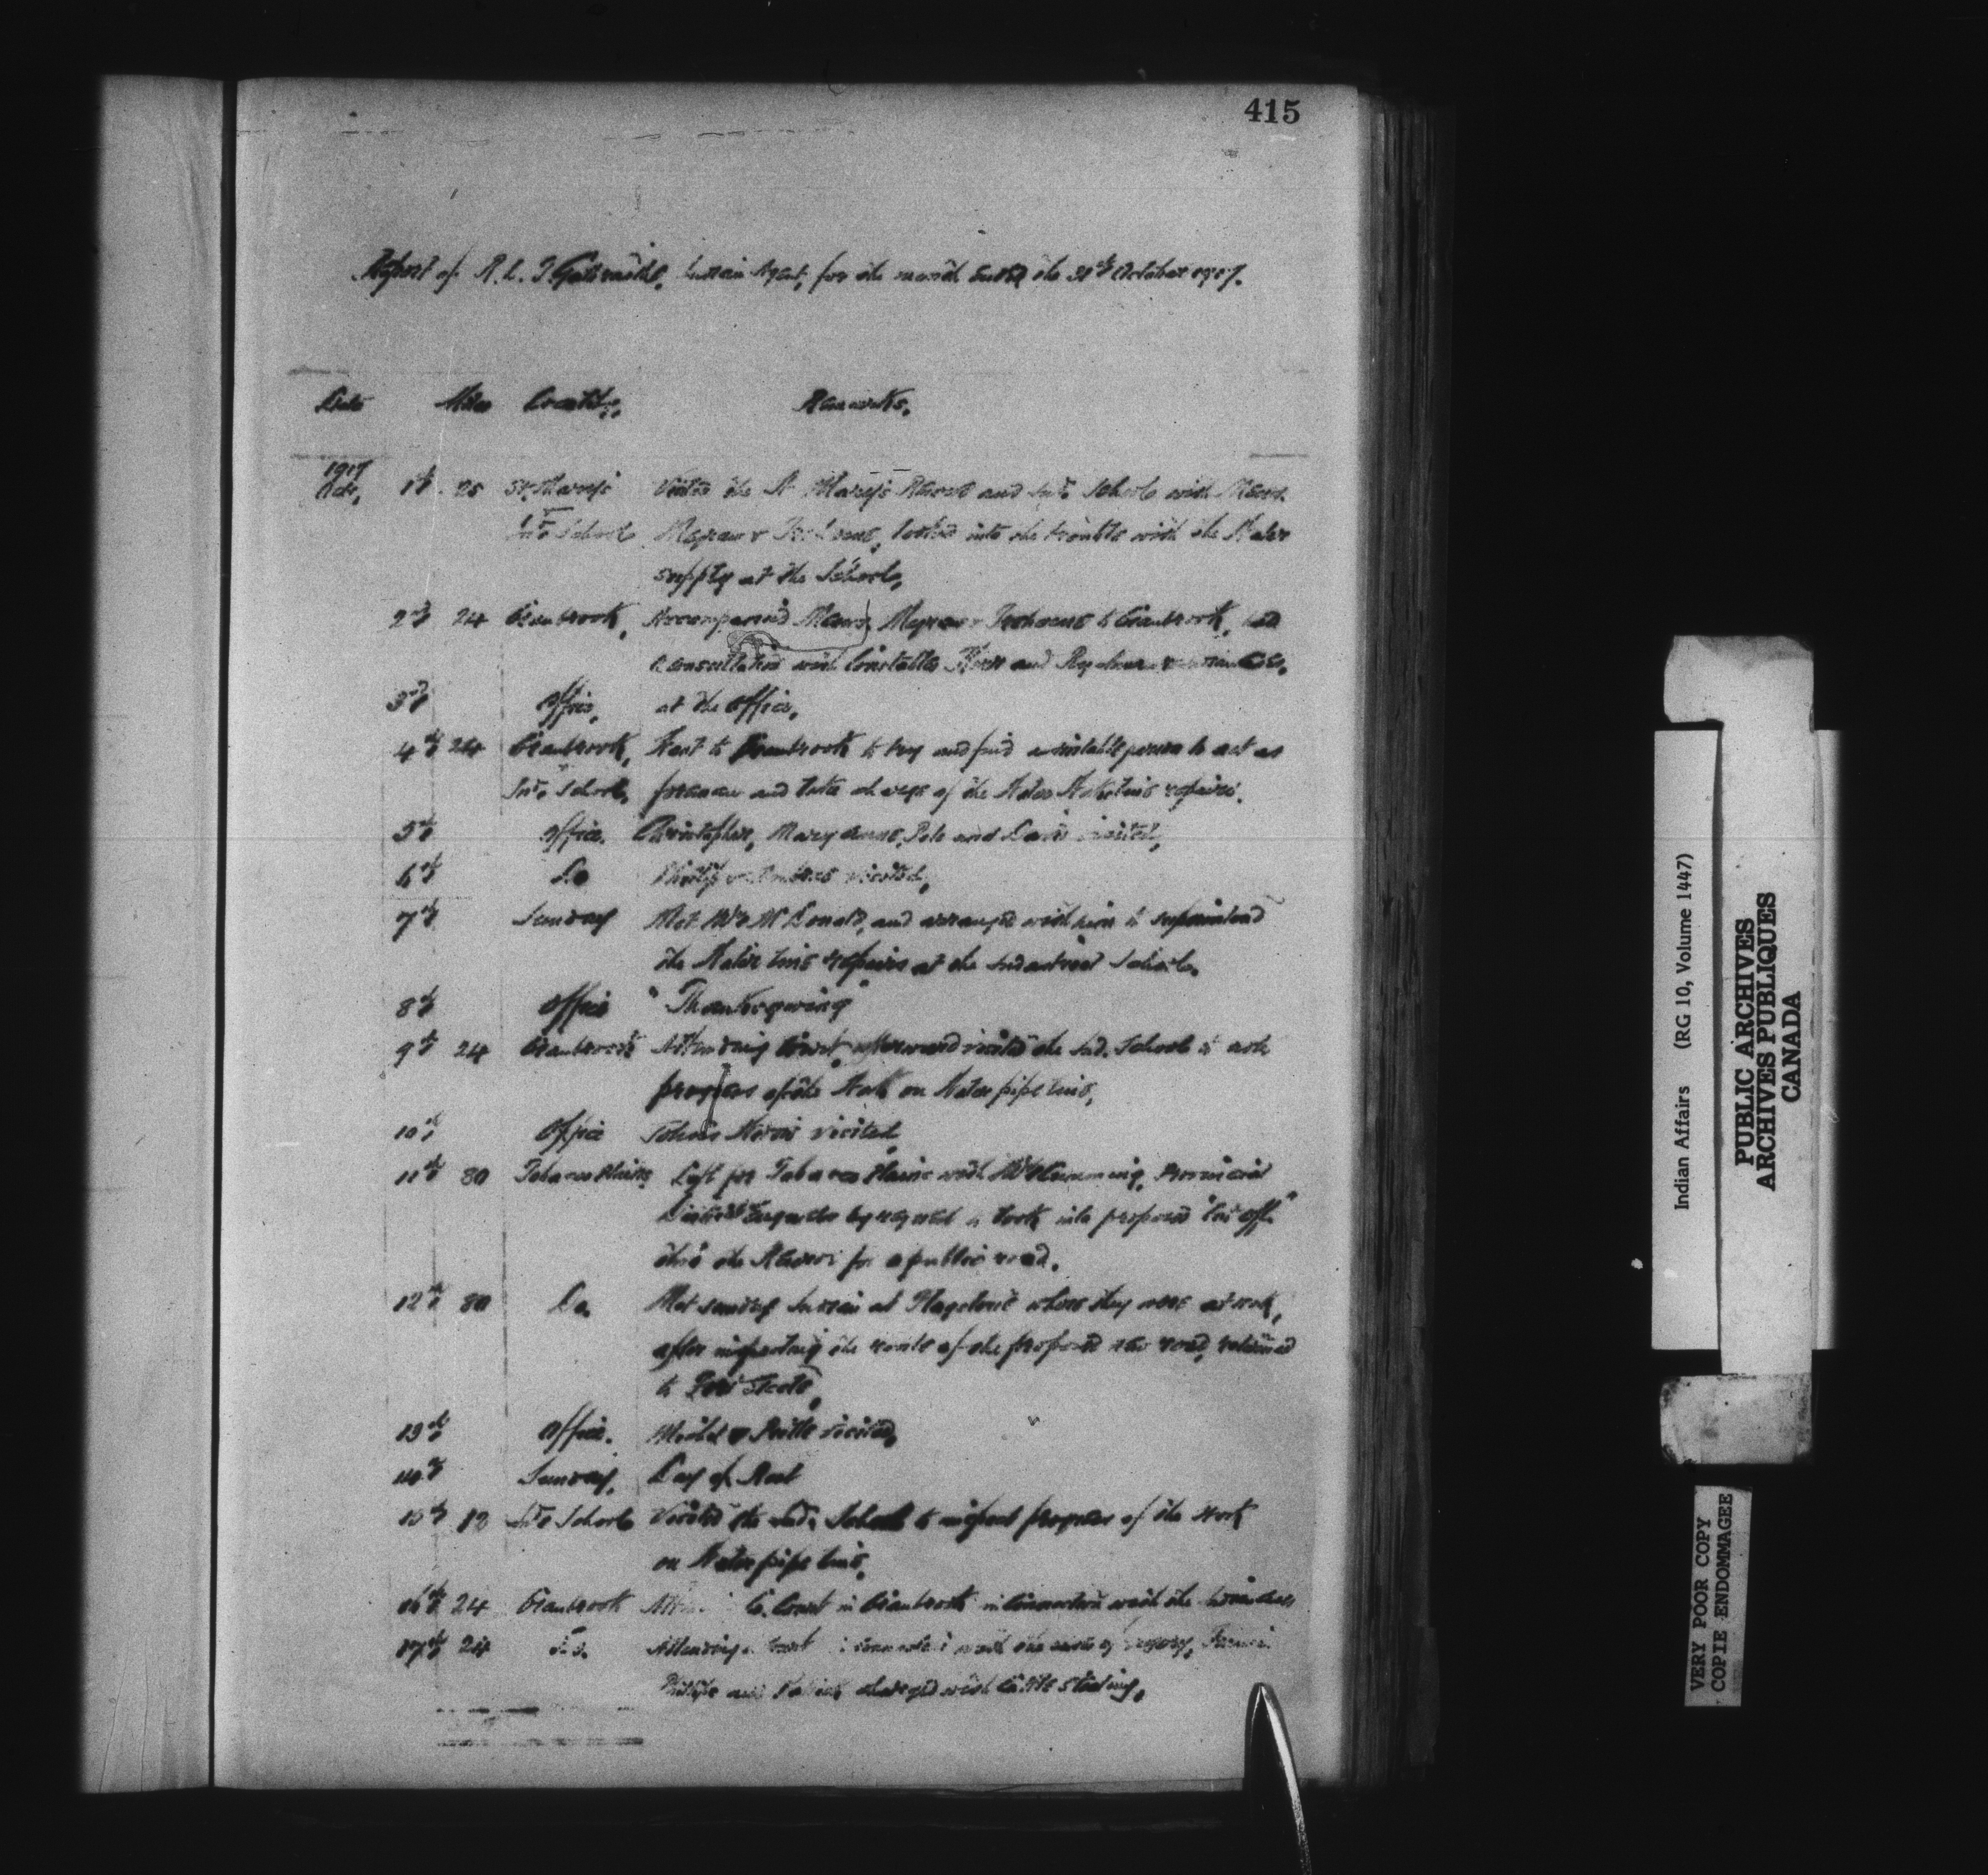 415
Report of R. L. T. Galbraith, Indian Agent, for the month ended the 31st October 1917.
Date Miles Locality. Remarks.
1917
Oct. 1st 25 St. Mary's Visited the St Mary's Reserve and Ind. School with Messrs
Ind. School looked into the trouble with the Water
supply at the School,
2nd 24 Cranbrook, Accompanied Messrs to Cranbrook, had
a consultation with Constables and
3rd Office, at the Office,
4th 24 Cranbrook, Went to Cranbrook to try and find a suitable person to act as
Ind. School, foreman and take charge of the Water repairs.
5th Office. Christopher, Mary Anne, Pete and visited,
6th Do Phillip visited,
7th Sunday Met Mr McDonald, and arranged with him to superintend
the Water line repairs at the Industrial School.
8th Office "Thanksgiving"
9th 24 Cranbrook Attending Court, afterward visited the Ind. School to note
progress of the Work on Water pipe line,
10th Office visited
11th 80 Tobacco Plains Left for Tobacco Plains with Mr Cumming, Provincial
District Engineer by request to look into proposed "cut off"
thro the Reserve for a public road.
12th 80 Do. Met sundry Indians at Flagstone where they were at work,
after inspecting the route of the proposed new road, returned
to Fort Steele,
13th Office. visited,
14th Sunday, Day of Rest
15th 12 Ind. School Visited the Ind. School to inspect progress of the Work
on Water pipe line,
16th 24 Cranbrook Co. Court in Cranbrook in connection with the
17th 24 Do. Attending Court with the case of
and charged with Cattle stealing.
Indian Affairs (RG 10, Volume 1447)
PUBLIC ARCHIVES
ARCHIVES PUBLIQUES
CANADA
VERY POOR COPY
COPIE ENDOMMAGEE